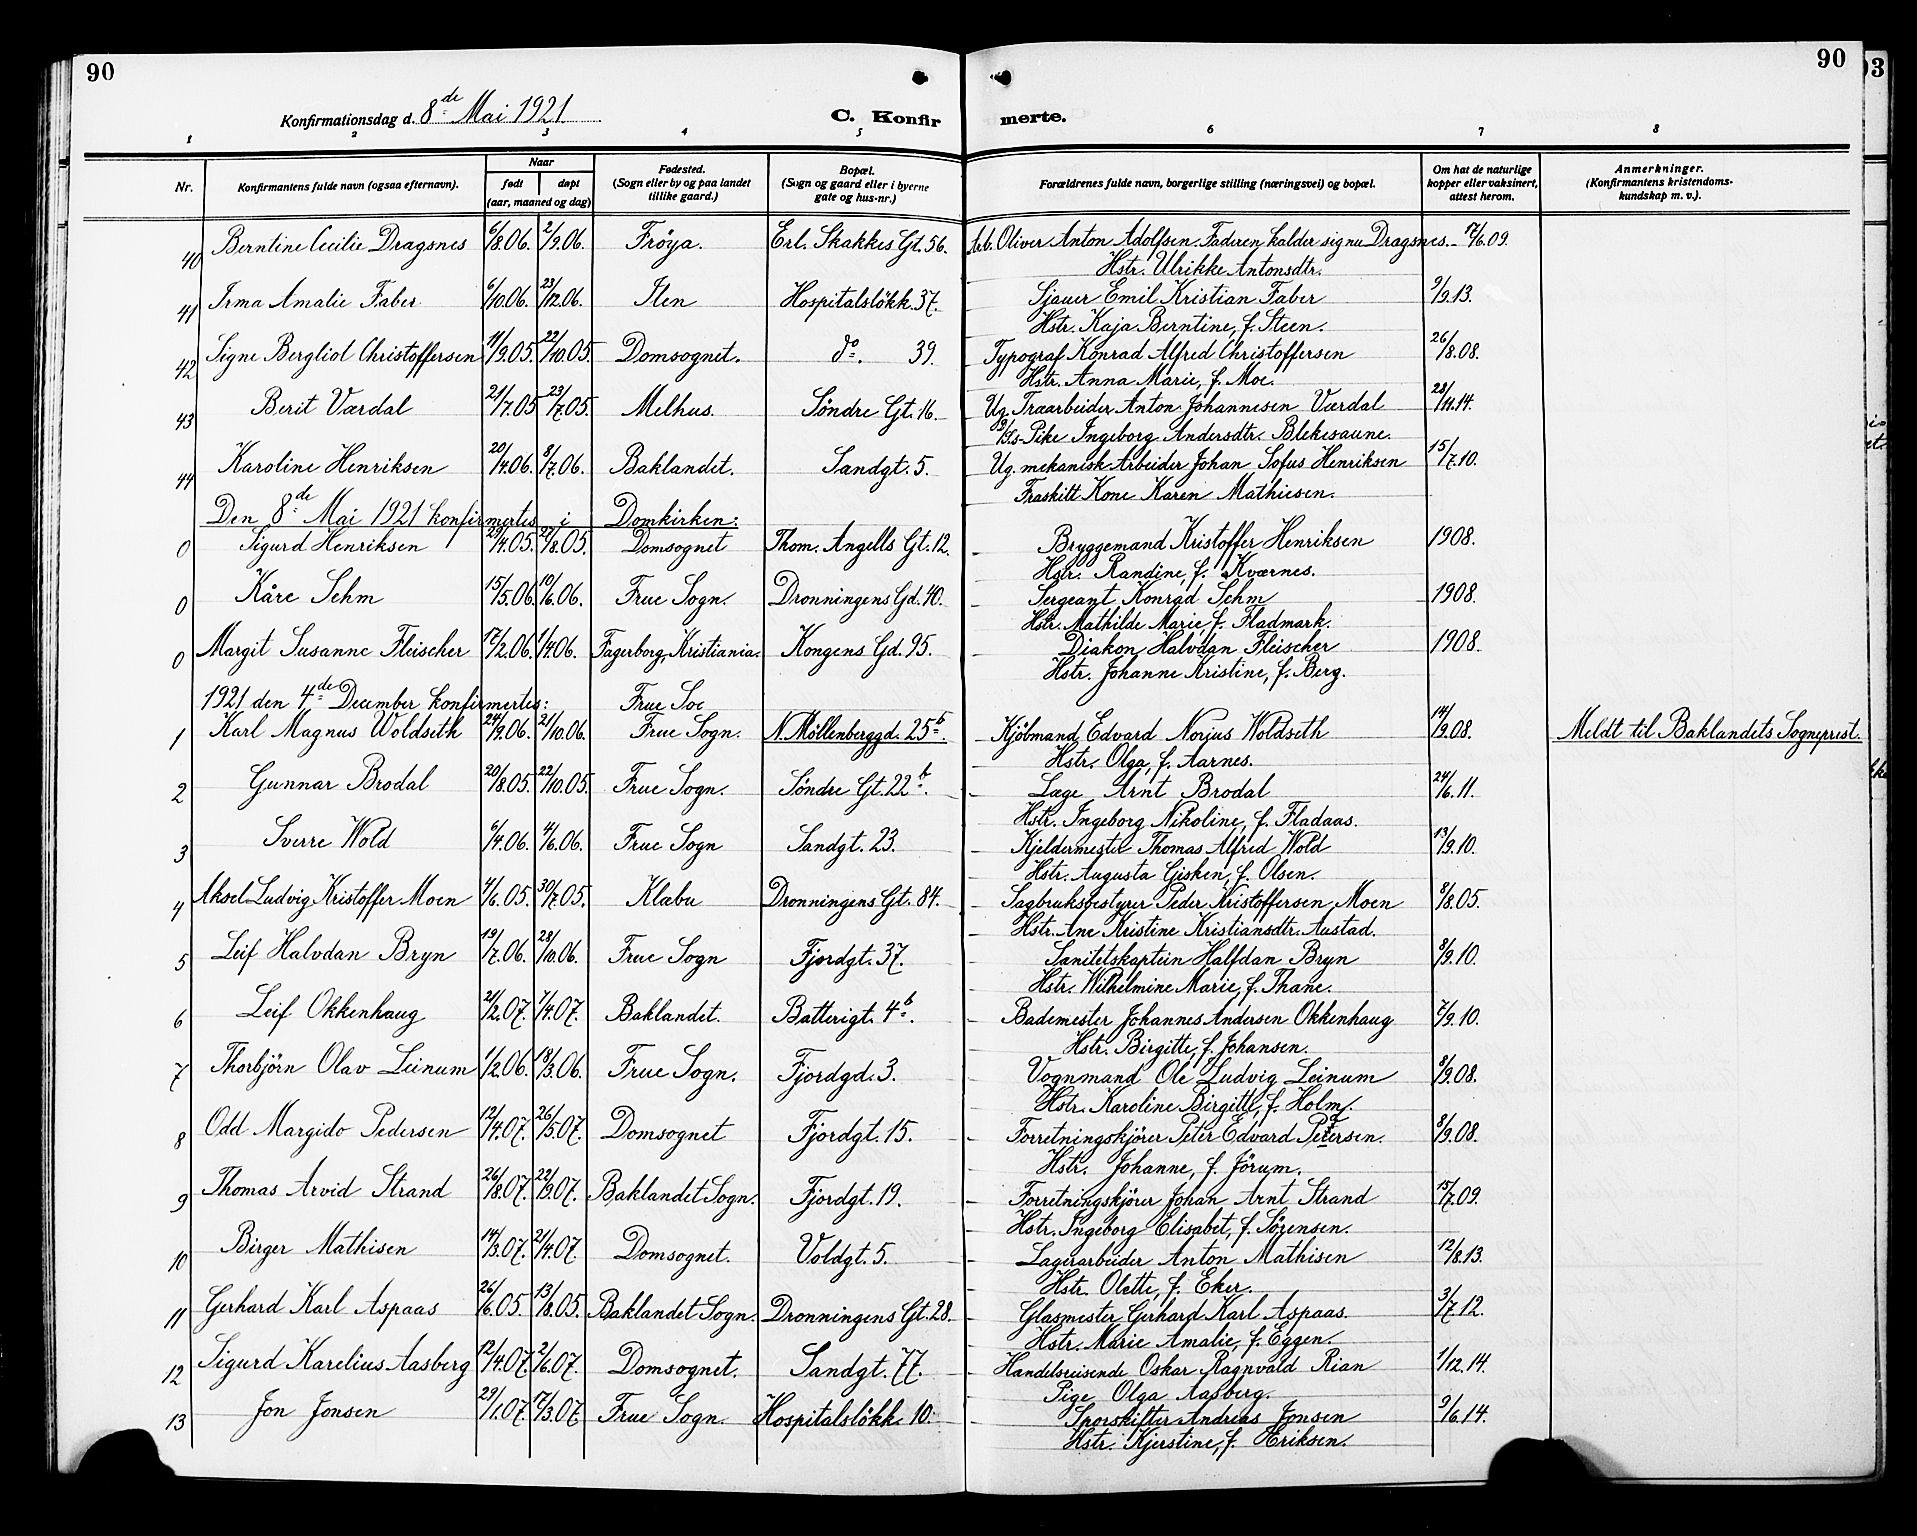 90
90
Konfirmationsdag d. 8de Mai 1921.
C. Konfirmerte.
1 2 3 4 5 6 7 8
Nr.
Konfirmantens fulde navn (ogsaa efternavn).
Naar
født døpt
(aar, maaned og dag)
Fødested.
(Sogn eller by og paa landet
tillike gaard.)
Bopæl.
(Sogn og gaard eller i byerne
gate og hus-nr.)
Forældrenes fulde navn, borgerlige stilling (næringsvei) og bopæl.
Om hat de naturlige
kopper eller vaksinert,
attest herom.
Anmerkninger.
(Konfirmantens kristendoms-
kundskap m. v.).
40 Berntine Cecilie Dragsnes 6/8.06. 2/9.06. Fröya. Erl. Skakkes Gt. 56. Arb. Oliver Anton Adolfsen. Faderen kalder sig nu Dragsnes. 17/6.09.
Hstr. Ulrikke Antonsdtr.
41 Irma Amalie Faber 6/10.06. 23/12.06. Ilen Hospitalslökk. 37. Sjauer Emil Kristian Faber 9/9.13.
Hstr. Kaja Berntine, f. Steen.
42 Signe Bergliot Christoffersen 11/9.05. 22/10.05. Domsognet. do. 39. Typograf Konrad Alfred Christoffersen 26/8.08.
Hstr. Anna Marie, f. Moe.
43 Berit Værdal 21/7.05 23/7.05. Melhus. Söndre Gt. 16. Ug. Træarbeider Anton Johannesen Værdal 28/11.14.
Pike Ingeborg Andersdtr. Blekesaune.
44 Karoline Henriksen 20/4.06. 8/7.06. Baklandet. Sandgt. 5. Ug. mekanisk Arbeider Johan Sofus Henriksen 15/7.10.
Fraskilt Kone Karen Mathiesen.
Den 8de Mai 1921 konfirmertes i Domkirken:
0 Sigurd Henriksen 29/4.05. 27/8.05. Domsognet Thom. Angells Gt. 12. Bryggemand Kristoffer Henriksen 1908.
Hstr. Randine, f. Kværnes.
0 Kåre Sehm 15/5.06. 10/6.06. Frue Sogn. Dronningens Gd. 40. Sergeant Konrad Sehm 1908.
Hstr. Mathilde Marie, f. Fladmark.
0 Margit Susanne Fleischer 17/2.06. 1/4.06. Fagerborg, Kristiania. Kongens Gd. 95. Diakon Halvdan Fleischer 1908.
Hstr. Johanne Kristine, f. Berg.
1921 den 4de December konfirmertes: Frue Soc
1 Karl Magnus Woldseth 24/9.06. 21/10.06. Frue Sogn. N. Möllenberggd. 25b. Kjöbmand Edvard Norjus Woldseth 14/9.08. Meldt til Baklandets Sogneprest.
Hstr. Olga, f. Aarnes.
2 Gunnar Brodal 20/8.05. 22/10.05. Frue Sogn. Söndre Gt. 22b. Læge Arnt Brodal 24/6.11.
Hstr. Ingeborg Nikoline, f. Fladaas.
3 Sverre Wold 6/4.06. 4/6.06. Frue Sogn Sandgt. 23. Kjeldermester Thomas Alfred Wold 13/9.10.
Hstr. Augusta Gisken, f. Olsen.
4 Aksel Ludvig Kristoffer Moen 4/6.05. 30/7.05. Klæbu Dronningens Gt. 84. Sagbruksbestyrer Peder Kristoffersen Moen 8/8.05.
Hstr. Ane Kristine Kristiansdtr. Austad.
5 Leif Halvdan Bryn 19/7.06. 28/10.06. Frue Sogn Fjordgt. 37. Sanitetskaptein Halfdan Bryn 8/9.10.
Hstr. Wilhelmine Marie, f. Thane.
6 Leif Okkenhaug 21/2.07. 7/4.07. Baklandet. Batterigt. 4b. Bademester Johannes Andersen Okkenhaug 7/9.10.
Hstr. Birgitte, f. Johansen.
7 Thorbjörn Olav Leinum 1/2.06. 18/3.06. Frue Sogn. Fjordgd. 3. Vognmand Ole Ludvig Leinum 8/9.08.
Hstr. Karoline Birgitte, f. Holm.
8 Odd Margido Pedersen 12/4.07. 26/5.07. Domsognet Fjordgt. 15. Forretningskjörer Peter Edvard Pedersen. 8/9.08.
Hstr. Johanne, f. Jörum.
9 Thomas Arvid Strand 26/8.07. 22/9.07. Baklandet Sogn. Fjordgt. 19. Forretningskjörer Johan Arnt Strand 15/7.09.
Hstr. Ingeborg Elisabet, f. Sörensen.
10 Birger Mathisen 14/3.07. 21/4.07. Domsognet. Voldgt. 5. Lagerarbeider Anton Mathisen 12/8.13.
Hstr. Olette, f. Eker.
11 Gerhard Karl Aspaas 26/6.05. 13/8.05. Baklandet Sogn. Dronningens Gt. 28. Glasmester Gerhard Karl Aspaas. 3/7.12.
Hstr. Marie Amalie, f. Eggen.
12 Sigurd Karelius Aasberg 12/4.07. 2/6.07. Domsognet. Sandgt. 77. Handelsreisende Oskar Ragnvald Rian 1/12.14.
Pige Olga Aasberg.
13 Jon Jonsen 29/1.07. 17/3.07. Frue Sogn. Hospitalslökk. 10. Sporskifter Andreas Jonsen 9/6.14.
Hstr. Kjerstine, f. Eriksen.